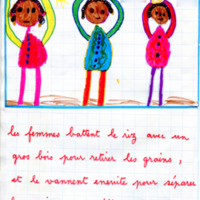 les femmes battent le riz avec un
gros bois pour retirer les grains,
et le vannent ensuite pour séparer